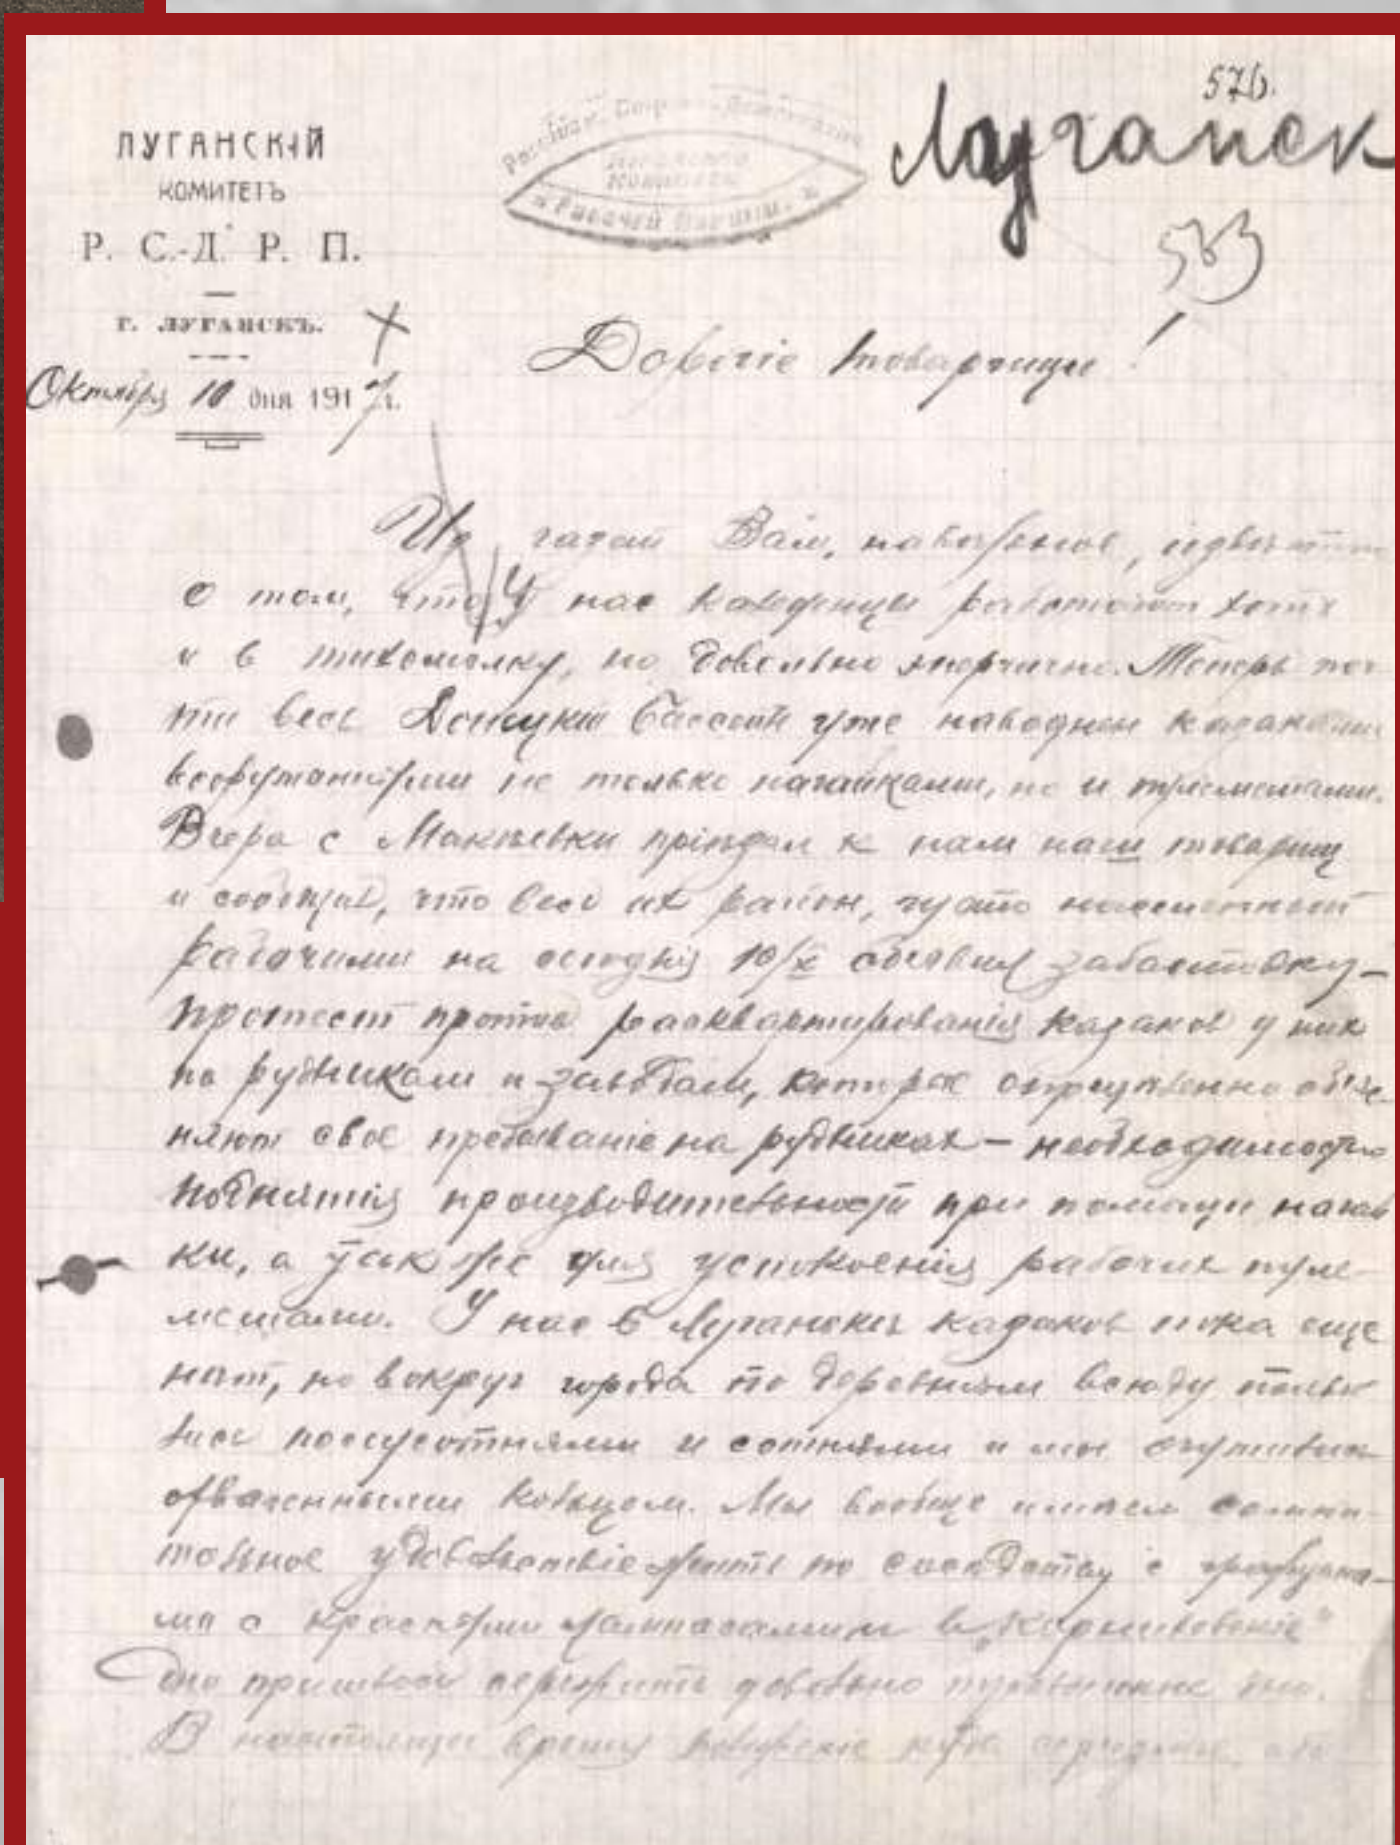 576.
Луганск
ЛУГАНСКІЙ
КОМИТЕТЪ
Р. С.-Д. Р. П.
г. ЛУГАНСКЪ.
Октября 10 дня 1917 г.
Российск. Соціал-Демократич.
Луганского Комитета
Рабочей Партіи.
583
Дорогіе товарищи!
Из газет Вам, наверное,
о том, что у нас каледенцы работают хотя
и в тихомолку, но довольно энергично. Теперь поч-
ти весь Донецкий бассейн уже наводнен казаками
вооруженными не только нагайками, но и пулеметами.
Вчера с Макеевки пріехал к нам наш товарищ
и сообщил, что весь их район, густо населенный
рабочими на сегодня 10/X объявил забастовку-
протест против расквартированія казаков у них
по рудникам и заводам, которые
няют свое пребываніе на рудниках — необходимостью
поднятія производительности при помощи нагай
ки, а так же для успокоенія рабочих пуле-
метами. У нас в Луганске казаков пока еще
нет, но вокруг города по деревням всюду
полусотнями и сотнями и мы очутились
охваченными кольцом. Мы вообще имеем сомни-
тельное удовольствіе жить по соседству с
ми с красными лампасами и в „Корниловскіе"
дни пришлось пережить довольно тревожные дни.
В настоящее время